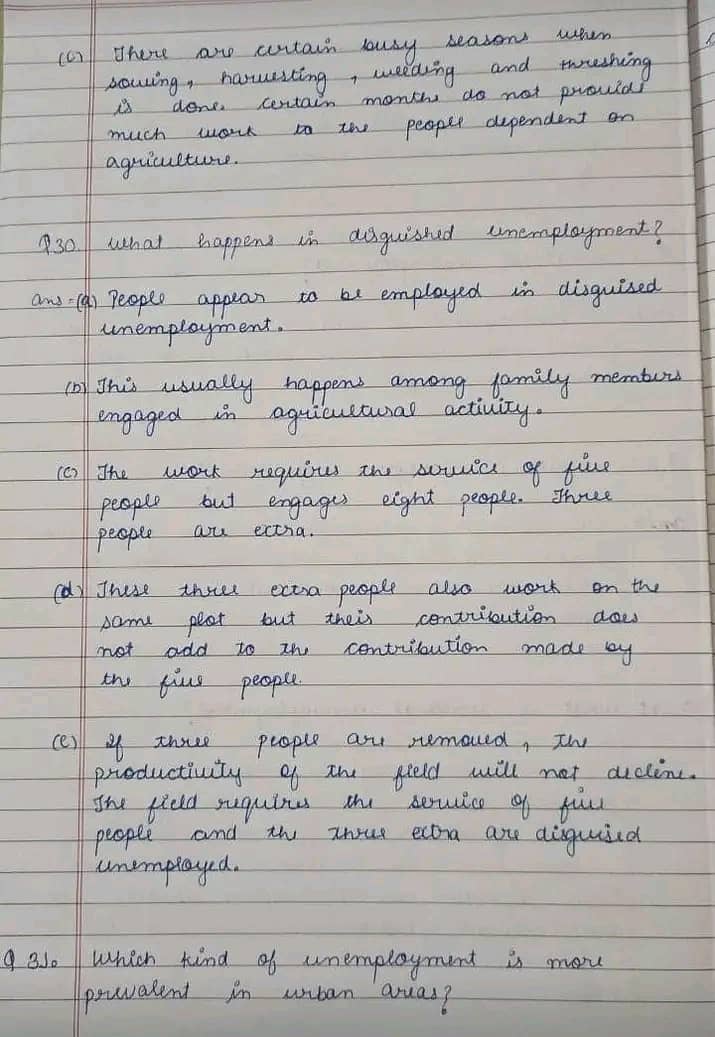 (c) There are certain busy seasons when
sowing, harvesting, weeding and threshing
is done. certain months do not provide
much work to the people dependent on
agriculture.
Q30. what happens in disguished unemployment?
ans-(a) People appear to be employed in disguised
unemployment.
(b) This usually happens among family members
engaged in agricultural activity.
(c) The work requires the service of five
people but engages eight people. Three
people are extra.
(d) These three extra people also work on the
same plot but theis contribution does
not add to the contribution made by
the five people.
(e) If three people are removed, the
productivity of the field will not decline.
The field requires the service of five
people and the three extra are disguised
unemployed.
Q 31. which kind of unemployment is more
prevalent in urban areas?